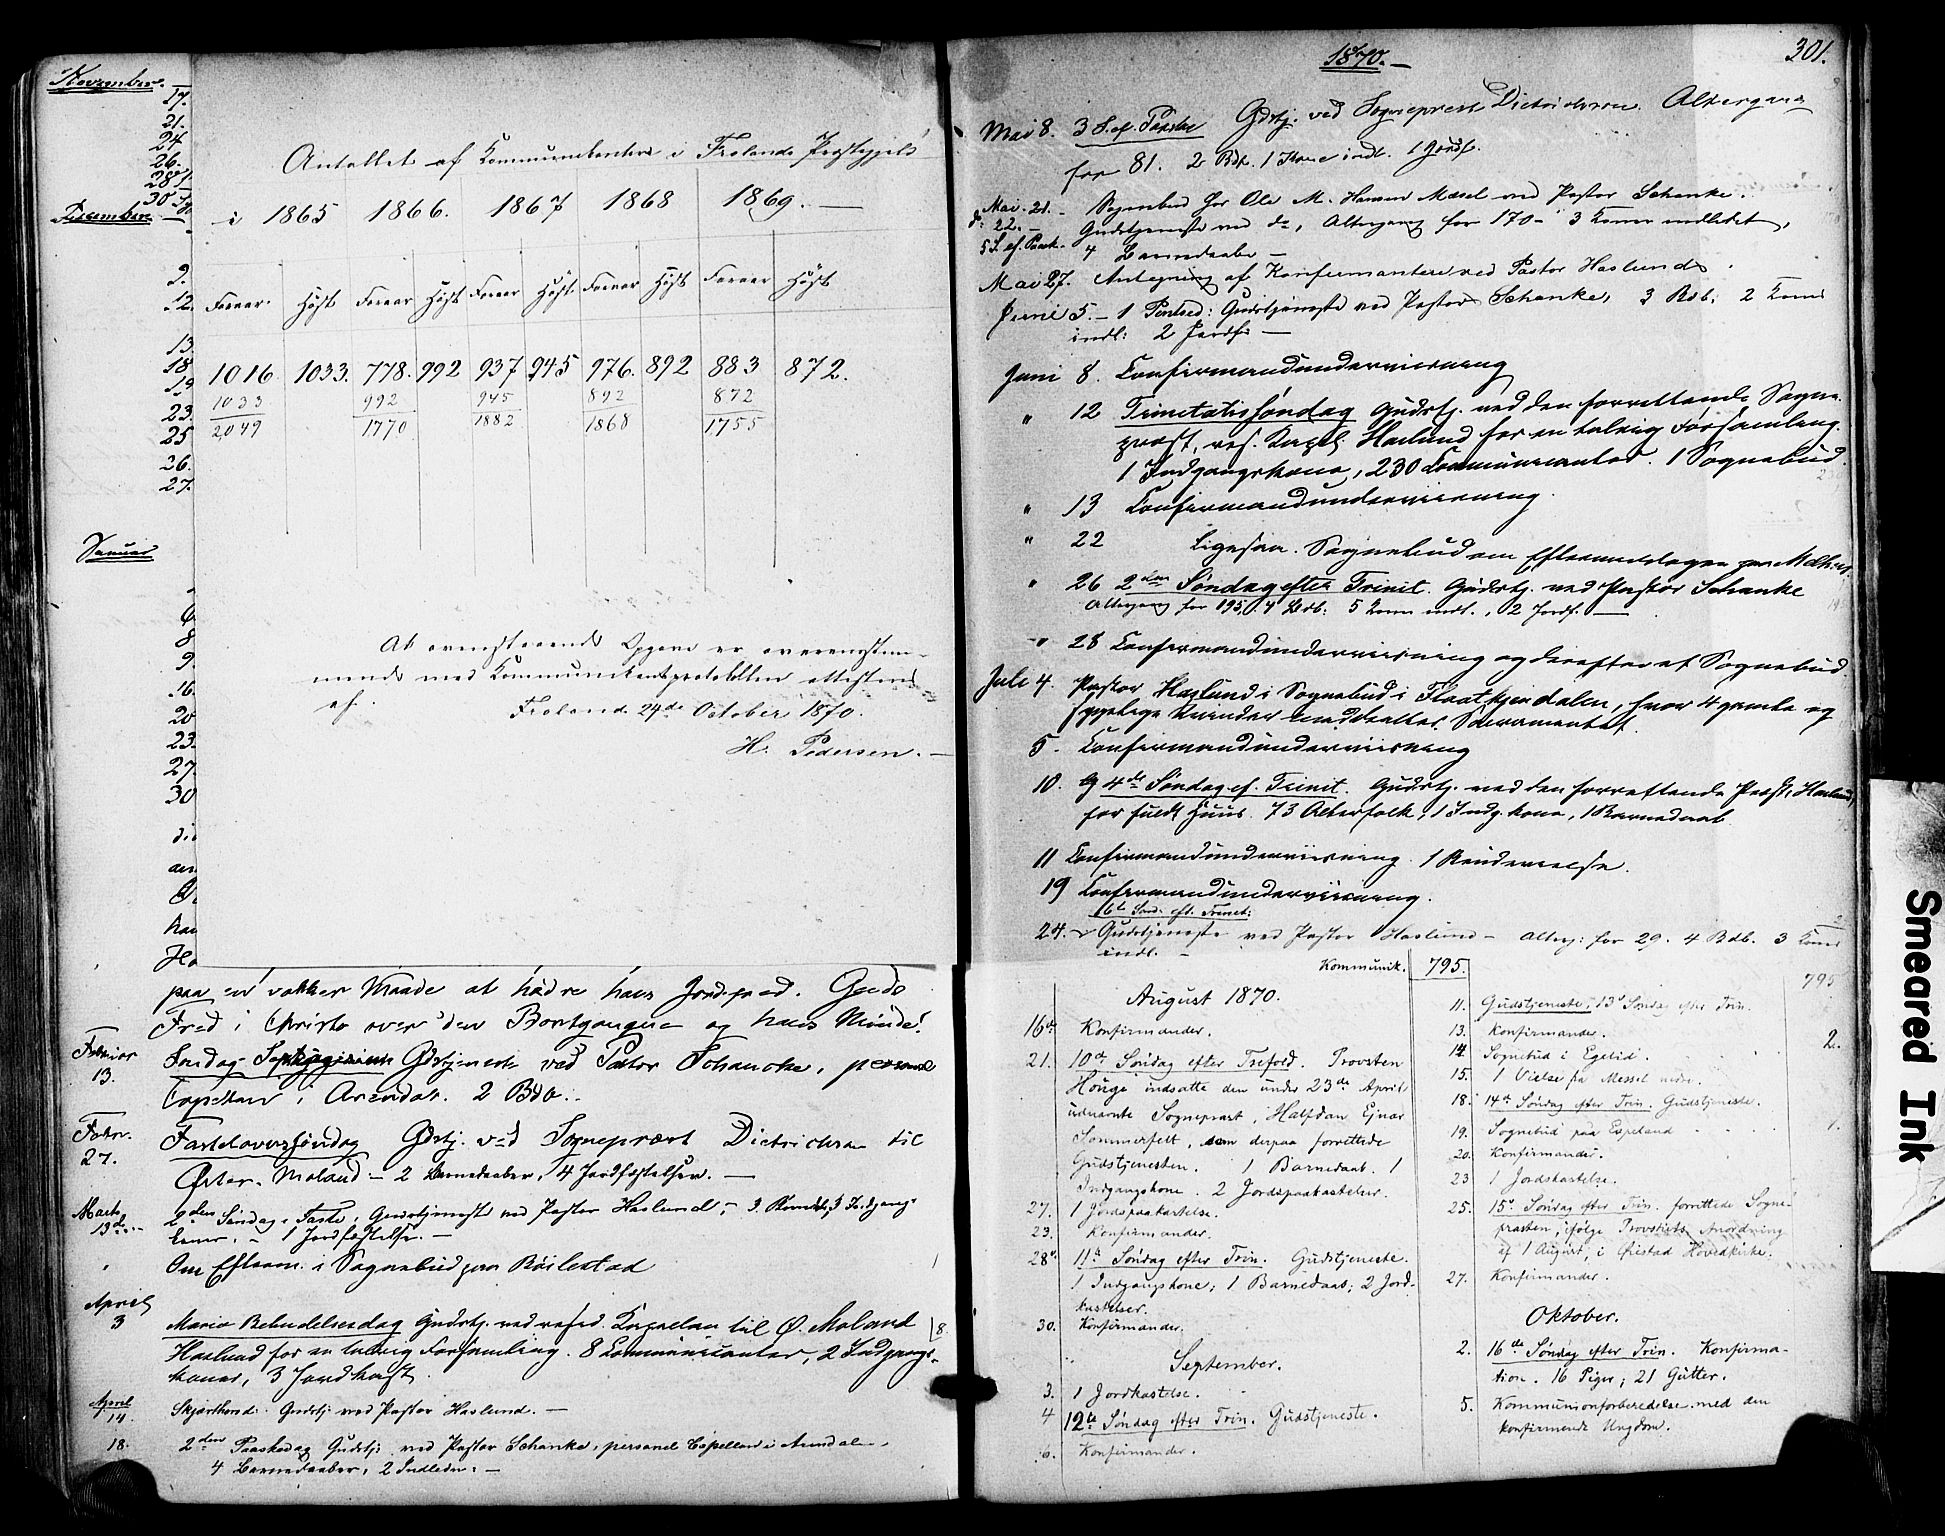 November.
17.
21.
24
26.
28
30
December
9.
12.
13.
18
19
23.
25
26.
27.
Januar
6
8
9.
16.
20
23.
27
30
Antallet af Kommunikantere i Frolands Præstegjeld
i 1865 1866. 1867 1868 1869.
Foraar Höst Foraar Höst Foraar Höst Foraar Höst Foraar Höst
1016 1033. 778. 992 937 945 976. 892 883 872.
1033 992 945 892 872
2049 1770 1882 1868 1755
At ovenstaaende Opgave er overensstem-
mende med Kommunikantprotokollen attesteres
af.
Froland 24de October 1870.
H. Pedersen.
paa en vakker Maade at hædre hans Jordefærd. Guds
Fred i Christo over den Bortgangne og hans Minde!
Februar 13. Søndag Septuagesima Gdstjeneste ved Pastor Schancke, personel
Capellan i Arendal. 2 Bdb.
Febr. 27. Fastelavnssøndag Gdstj. ved Sognepræst Dietrichson til
Øster-Moland - 2 Barnedaaber, 4 Jordfæstelser.
Marts 13de 2den Søndag i Faste, Gudstjeneste ved Pastor Haslund, 3 Barnd. 3 Indgangs-
koner. 1 Jordfæstelse.
Om Efterm. i Sognebud paa Böilestad
April 3 Maria Bebudelsesdag Gudstj. ved resid. Kapellan til Ø. Moland 8.
Haslund for en talrig Forsamling. 8 Communicanter, 2 Indgangs-
koner, 3 Jordkast.
April 14. Skjærthorsd. Gudstj. ved Pastor Haslund.
18. 2den Paaskedag Gudstj. ved Pastor Schanke, personel Capellan i Arendal.
4 Barnedaaber, 2 Indledn.
1870.
301.
Mai 8. 3 S. ef. Paaske Gdstj. ved Sognepræst Dietrichson. Altergang
for 81. 2 Bdb. 1 Kone indl. 1 Jordf.
Mai 21. Sognebud hos Ole M. Hansen Mæsel ved Pastor Schanke.
do 22. Gudstjeneste ved do, Altergang for 170 - 3 Koner indledet,
5 S. ef. Paask. 4 Barnedaaber
Mai 27. Antegning af Konfirmantere ved Pastor Haslund
Juni 5. 1 Pintsed: Gudstjeneste ved Pastor Schanke, 3 Bdb: 2 Koner
indl: 2 Jordf.
Juni 8. Confirmandunderviisning
" 12 Trinitatissøndag Gudstj. ved den forrettende Sogne-
præst, res. Kapel. Haslund for en talrig Forsamling.
1 Indgangskone, 230 Communicanter. 1 Sognebud.
" 13 Confirmandunderviisning.
" 22 Ligesaa. Sognebud om Eftermiddagen paa Melhus.
" 26 2den Søndag efter Trinit. Gudstj. ved Pastor Schanke
Altergang for 195, 4 Bdb: 5 Koner indl., 2 Jordf.
" 28 Confirmandunderviisning og derefter et Sognebud.
Juli 4. Pastor Haslund i Sognebud i Flaatkjendalen, hvor 4 gamle og
sygelige Kvinder meddeeltes Sacramentet.
5. Confirmandunderviisning
10. 4de Søndag ef. Trinit. Gudstj. ved den forrettende Præst, Haslund,
for fuldt Huus. 73 Alterfolk, 1 Indg.kone, 1 Barnedaab
11 Confirmandunderviisning.
19 Confirmandunderviisning.
6te Sønd. eft. Trinit:
24. Gudstjeneste ved Pastor Haslund - Alterg: for 29. 4 Bdb. 3 Koner
indl.
Kommunik. 795.
795
August 1870.
16de Konfirmander.
21. 10de Søndag efter Trefold. Provsten
Houge indsatte den under 23de April
udnævnte Sognepræst, Halfdan Ejnar
Sommerfelt, som derpaa forrettede
Gudstjenesten. 1 Barnedaab. 1
Indgangskone. 2 Jordspaakastelser.
27. 1 Jordspaakastelse.
23. Konfirmander.
28de 11te Søndag efter Trin. Gudstjeneste.
1 Indgangskone; 1 Barnedaab; 2 Jord-
kastelser.
30. Konfirmander.
September.
3. 1 Jordkastelse.
4 12te Søndag efter Trin. Gudstjeneste.
6. Konfirmander.
11. Gudstjeneste, 13de Søndag efter Trin.
13. Konfirmander.
14. Sognebud i Egelid. 2.
15. 1 Vielse fra Messel nedre.
18. 14de Søndag efter Trin. Gudstjeneste.
19. Sognebud paa Espeland 1.
20. Konfirmander.
23 1 Jordskastelse.
25. 15de Søndag efter Trin. forrettede Sogne-
præsten, ifølge Provstiets Anordning
af 1 August, i Øiestad Hovedkirke.
27. Konfirmander.
Oktober.
2. 16de Søndag efter Trin. Konfirma-
tion. 16 Piger; 21 Gutter.
5. Kommunionforberedelse med den
konfirmerede Ungdom.
Smeared Ink